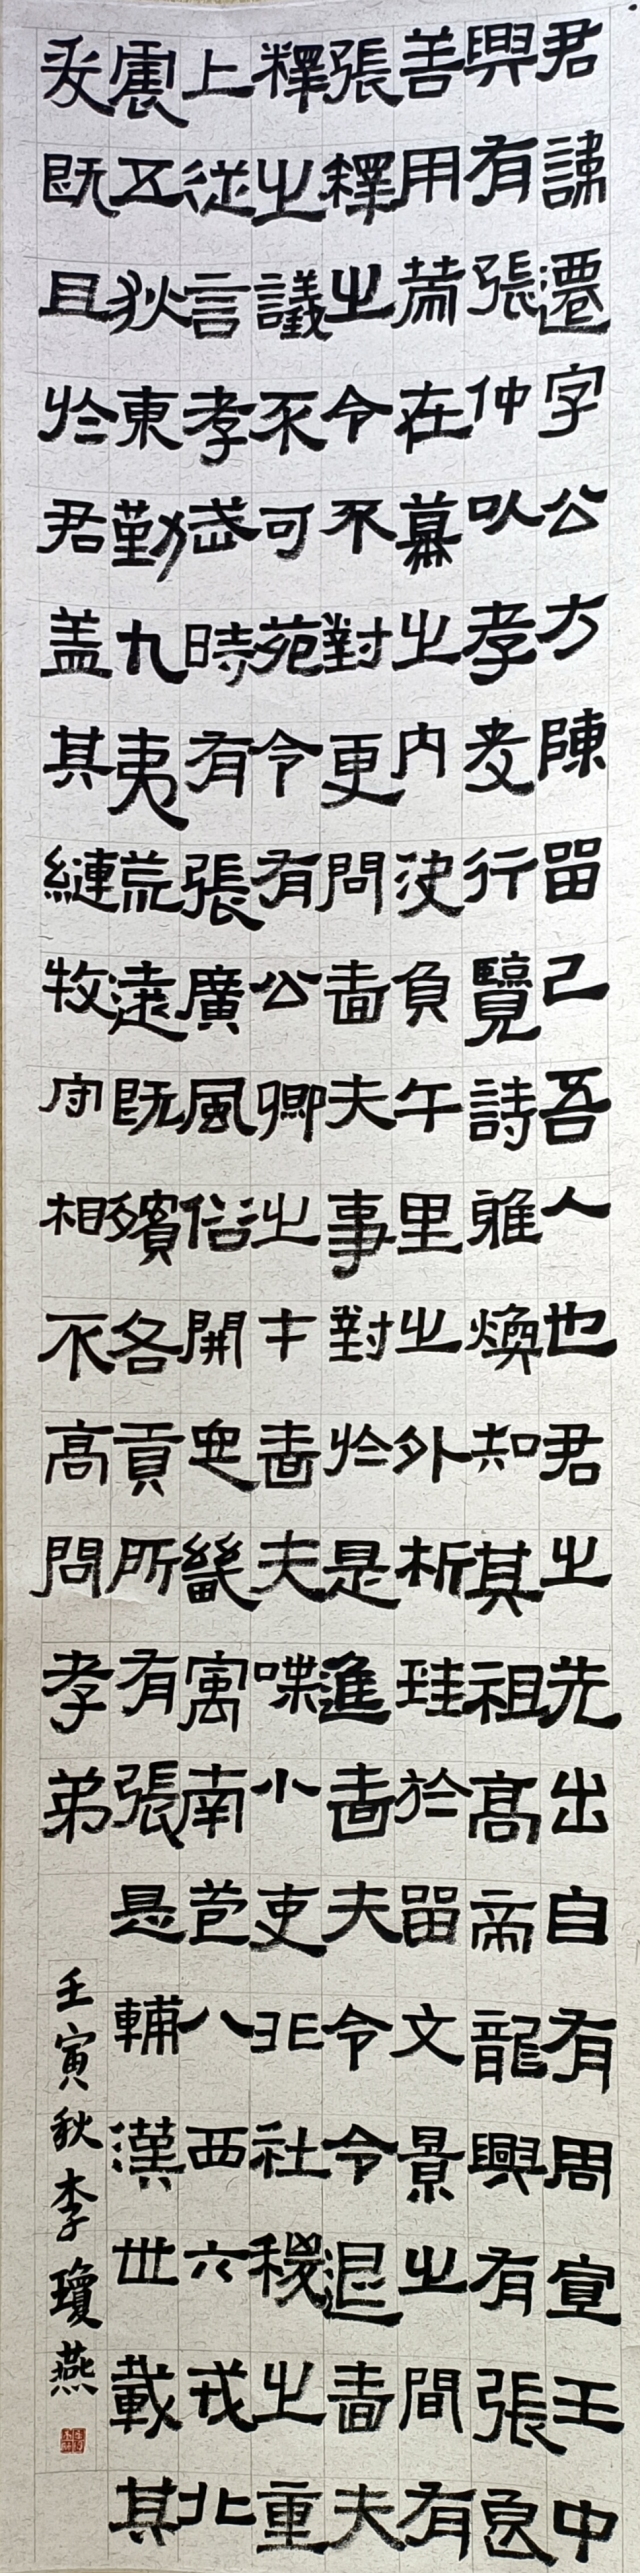 君諱遷字公方陳留己吾人也君之先出自有周宣王中
興有張仲以孝友行覽詩雅煥知其祖高帝龍興有張良
善用籌在幕之内決負千里之外析珪於留文景之間有
張釋之令不對更問嗇夫事對於是進嗇夫令令退嗇夫
釋之議不可苑令有公卿之才嗇夫喋小吏非社稷之重
上從言孝武時有張廣風俗開定畿寓南苞八西六戎北
震五狄東勤九夷荒遠既殯各貢所有張是輔漢世載其
爰既且於君蓋其縺牧守相不高問孝弟
壬寅秋李瓊燕